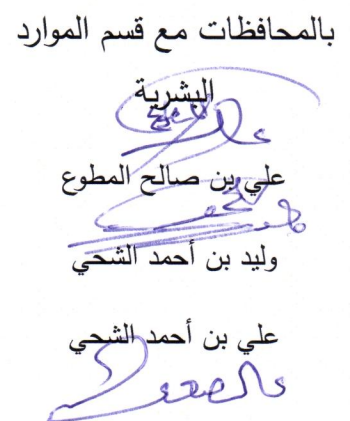 بالمحافظات مع قسم الموارد
البشرية
علي بن صالح المطوع
وليد بن أحمد الشحي
علي بن أحمد الشحي